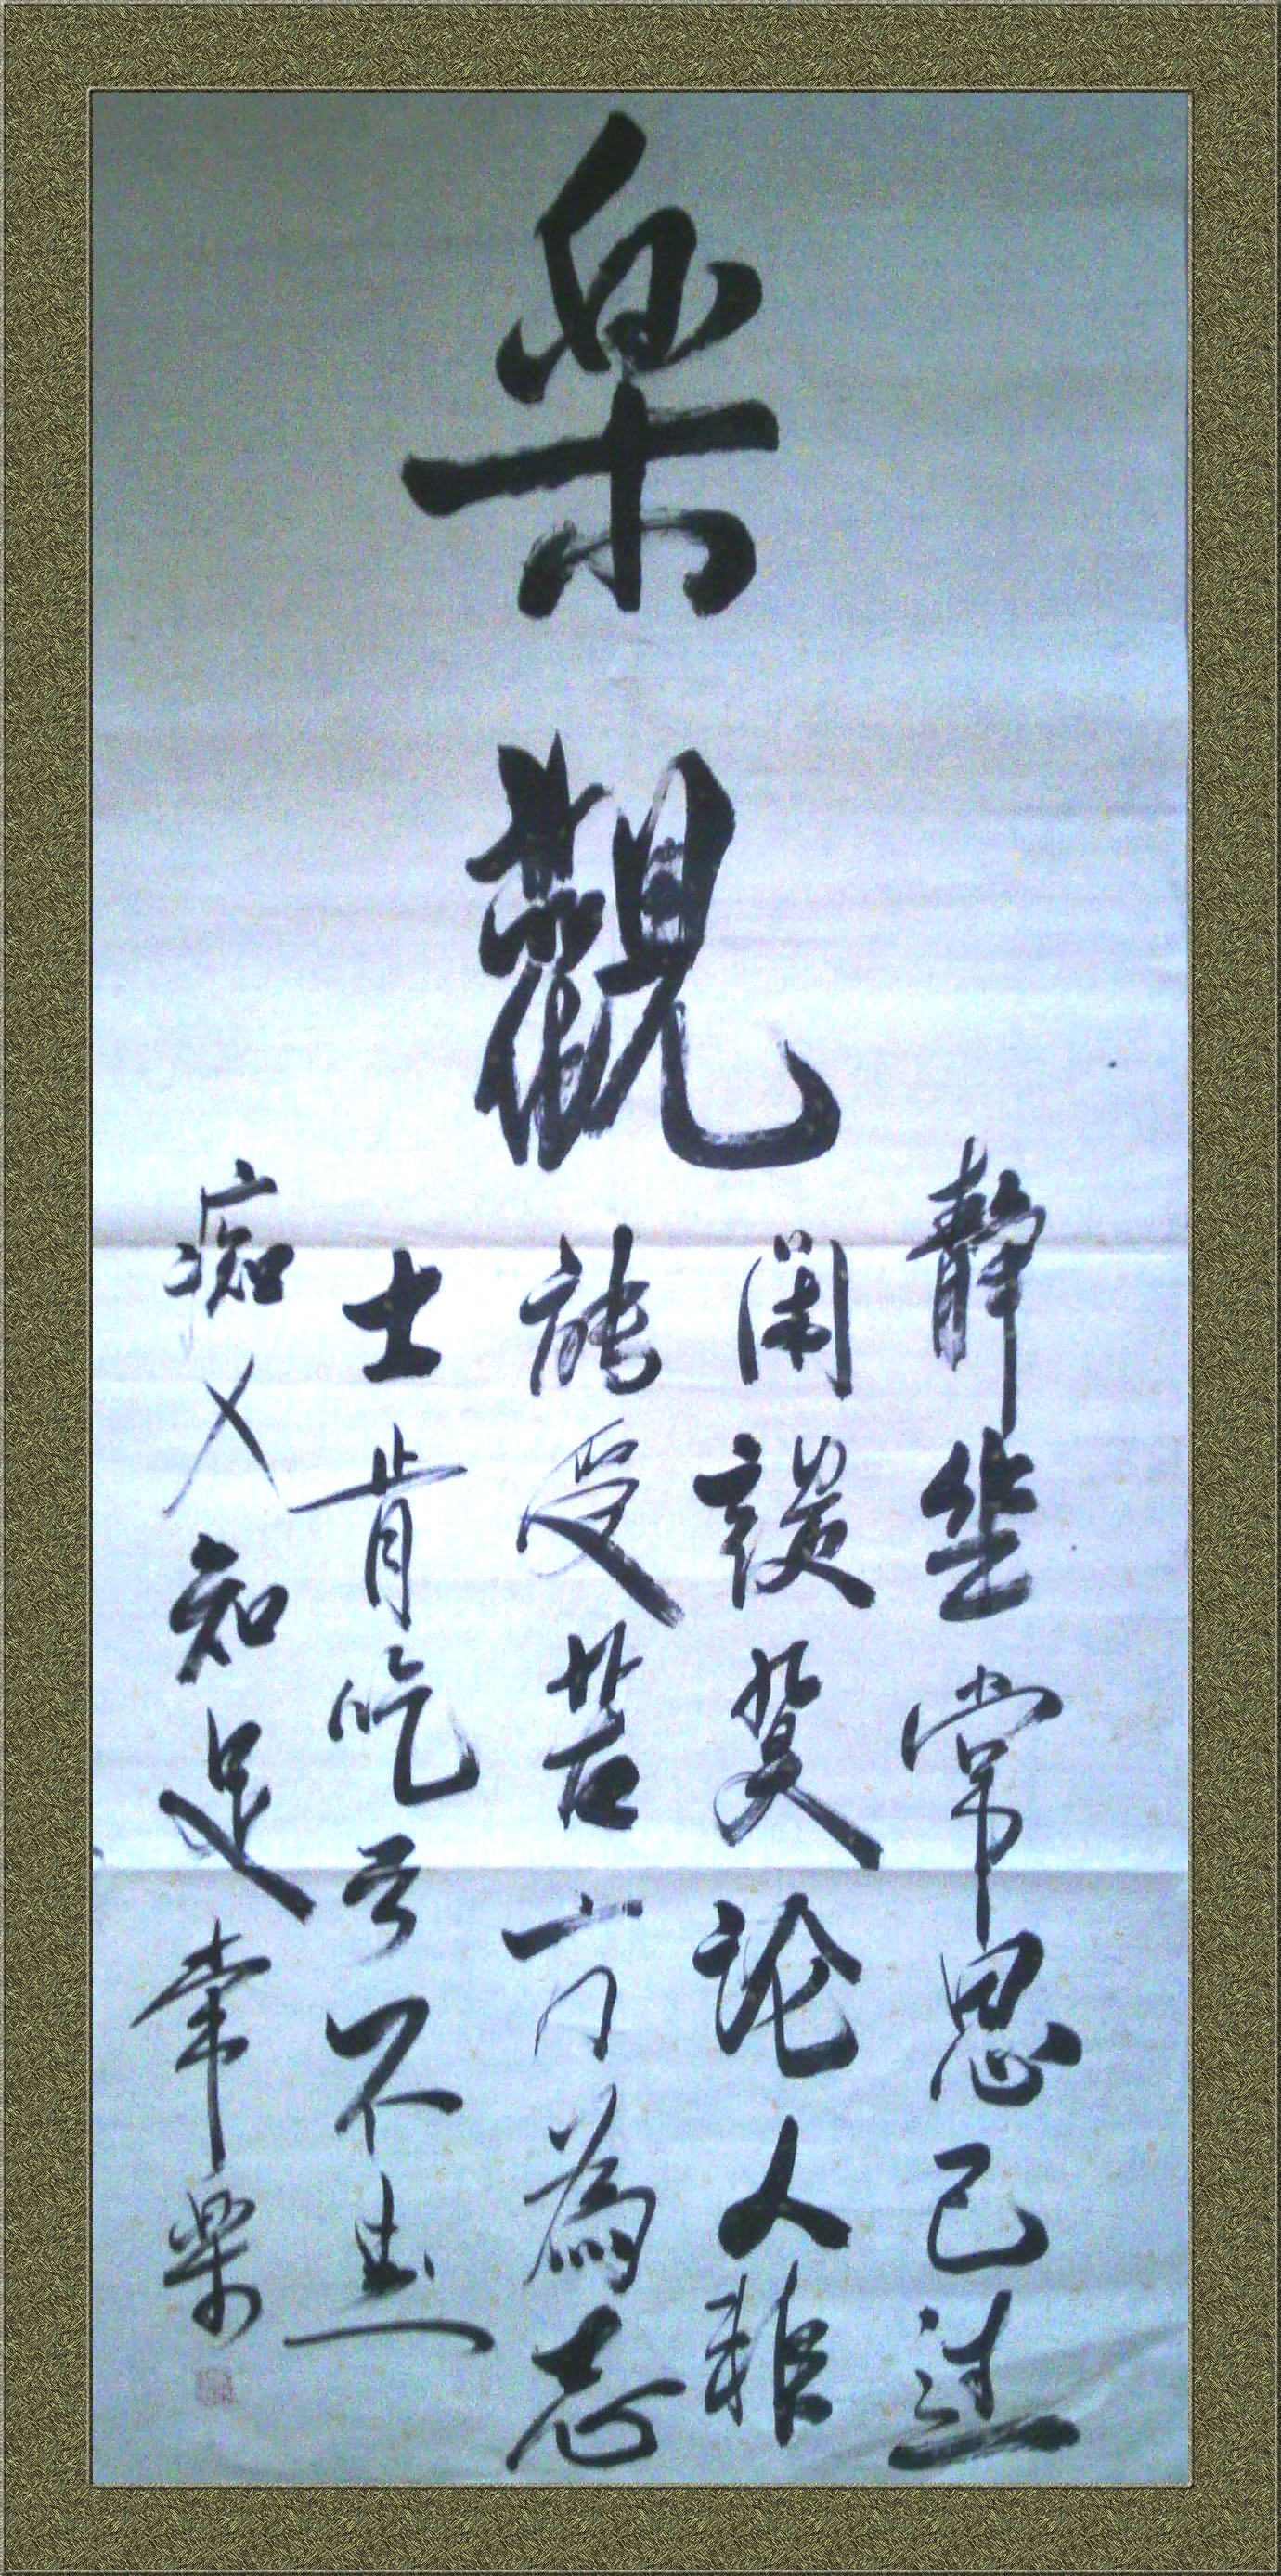 樂觀
静坐常思己過
閑談莫论人非
能受苦方為志
士肯吃亏不是
痴人知足常樂